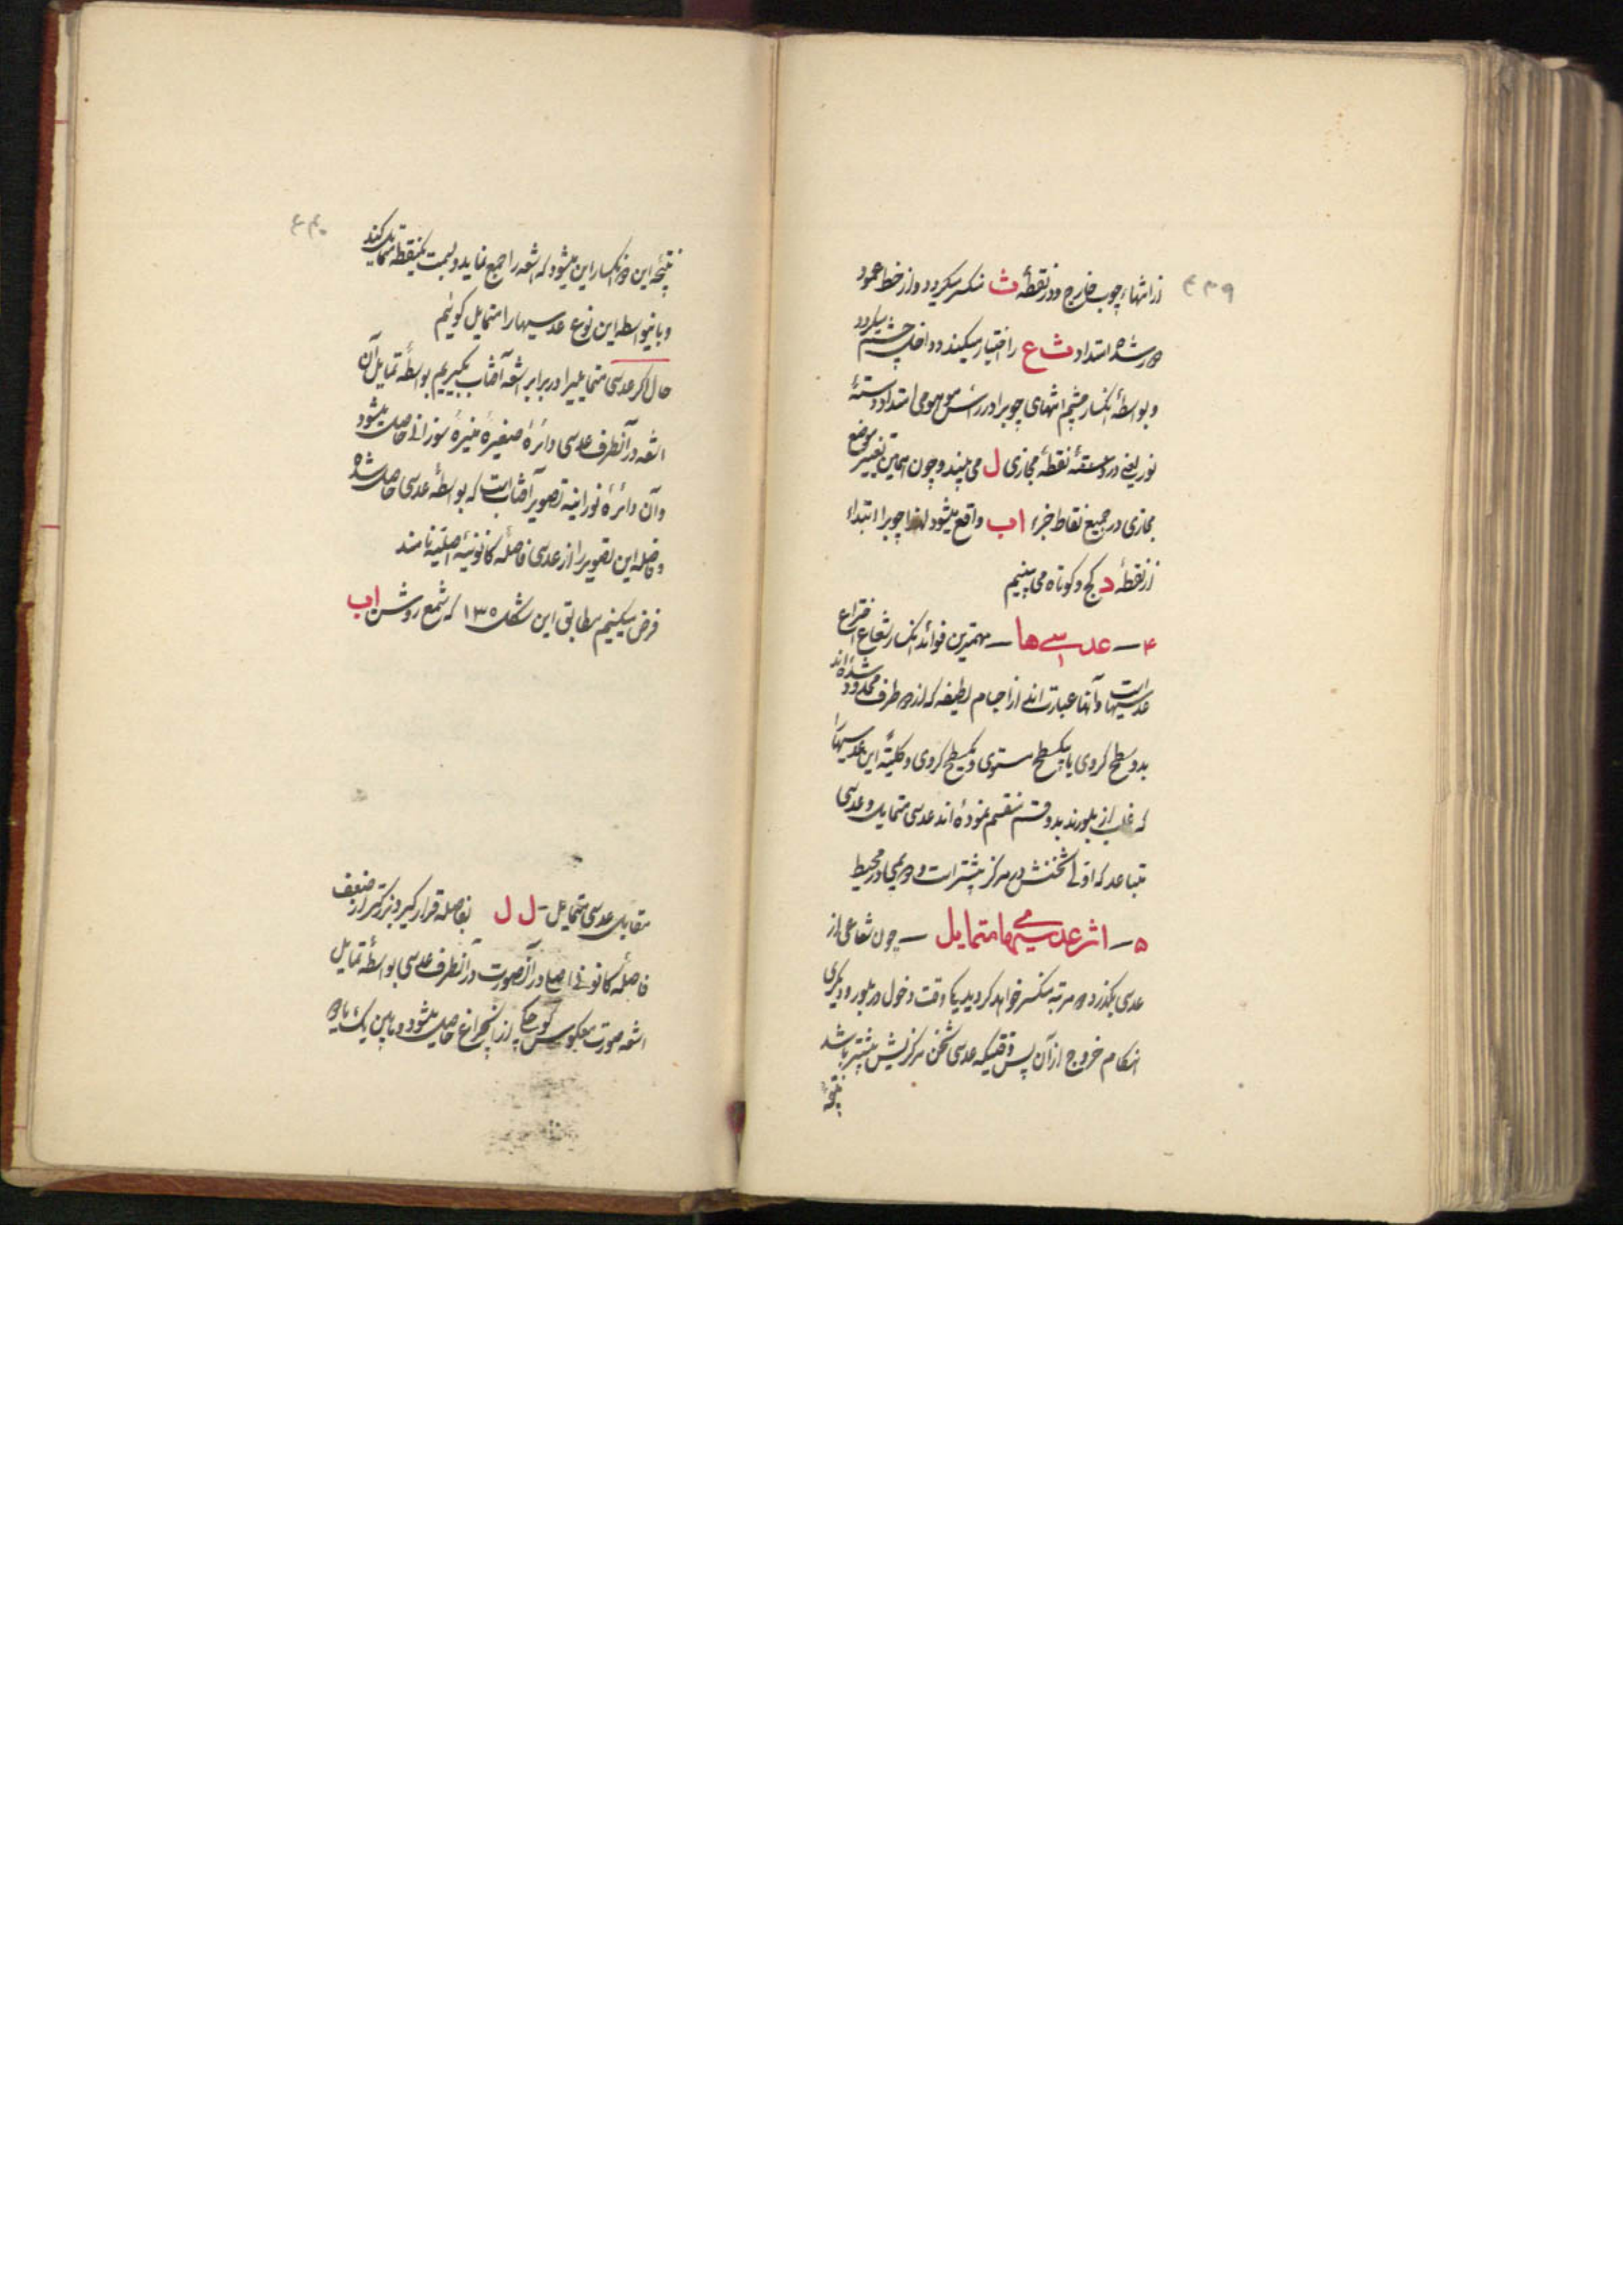 ۴۳۹
از انتهاء چوب خارج و در نقطهٔ ث منکسر میگردد و از خط عمود
دور شده امتداد ث ع را اختیار میکند و داخل چشم میگردد
و بواسطهٔ انکسار چشم انتهای چوبرا در رأس موهومی امتداد دستهٔ
نور یعنی در نقطهٔ مجازی ل می بیند و چون همین تغییر موضع
مجازی در جمیع نقاط جزء اب واقع میشود لهذا چوبرا ابتداء
از نقطهٔ د کج و کوتاه می بینیم
۴ــ عدسی ها ــ مهمترین فوائد انکسار شعاع اختراع
عدسیهاست و آنها عبارت اند از اجسام لطیفه که از دو طرف محدود شده اند
بدو سطح کروی یا یکسطح مستوی و یکسطح کروی و کلیّهٔ این عدسیها
که غالب از بلورند بدو قسم منقسم نموده اند عدسی متمایل و عدسی
متباعد که اوّلی ثخنش در مرکز بیشتر است و دویمی در محیط
۵ــ اثر عدسیهای متمایل ــ چون شعاعی از
عدسی بگذرد دو مرتبه منکسر خواهد گردید یکی وقت دخول در بلور و دیگری
هنگام خروج از آن پس وقتیکه عدسی ثخن مرکزیش بیشتر باشد
نتیجهٔ
۴۴۰
نتیجهٔ این دو انکسار این میشود که اشعه را جمع نماید و بسمت یکنقطه متمایل کند
و باینواسطه این نوع عدسیها را متمایل گوئیم
حال اگر عدسی متمایلیرا در برابر اشعهٔ آفتاب بگیریم بواسطهٔ تمایل آن
اشعه در آنطرف عدسی دائرهٔ صغیرهٔ منیرهٔ سوزانی حاصل میشود
و آن دائرهٔ نورانیه تصویر آفتاب است که بواسطهٔ عدسی حاصل شده
و فاصلهٔ این تصویر را از عدسی فاصلهٔ کانونیهٔ اصلیّه نامند
فرض میکنیم مطابق این شکل ۱۳۵ که شمع روشن اب
مقابل عدسی متمایل ل ل بفاصله قرار گیرد بزرگتر از ضعف
فاصلهٔ کانونی اصلی در آنصورت در آنطرف عدسی بواسطهٔ تمایل
اشعه صورت معکوس کوچکی از آنچراغ حاصل میشود و مابین یک یا دو